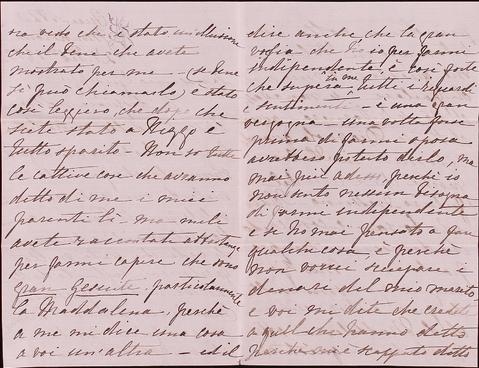 ra vedo che è stato un'illusione
che il bene che avete
mostrato per me – (se bene
si può chiamarlo) è stato
così leggiero, che dopo che
siete stato a Meggo è
tutto sparito – Non so tutte
le cattive cose che avranno
detto di me i miei
parenti lì, ma me li
avete raccontati abbastanza
per farmi capire che sono
gran gesuite, particolarmente
la Maddalena, perchè
a me mi dice una cosa
a voi un'altra – ed il
dire anche che la gran
voglia che ho io per farmi
indipendente, è così forte
che supera in me tutti i riguardi
e sentimenti – è una gran
vergogna – una volta forse
prima di farmi sposa
avrebbero potuto dirlo, ma
mai più adesso perchè io
non sento nessun bisogna
di farmi indipendente
e se ho mai pensato a far
qualche cosa, è perchè
non vorrei sciupare i
denari del mio marito
e voi mi dite che credete
a quel che hanno detto
perchè mi è scappato detto